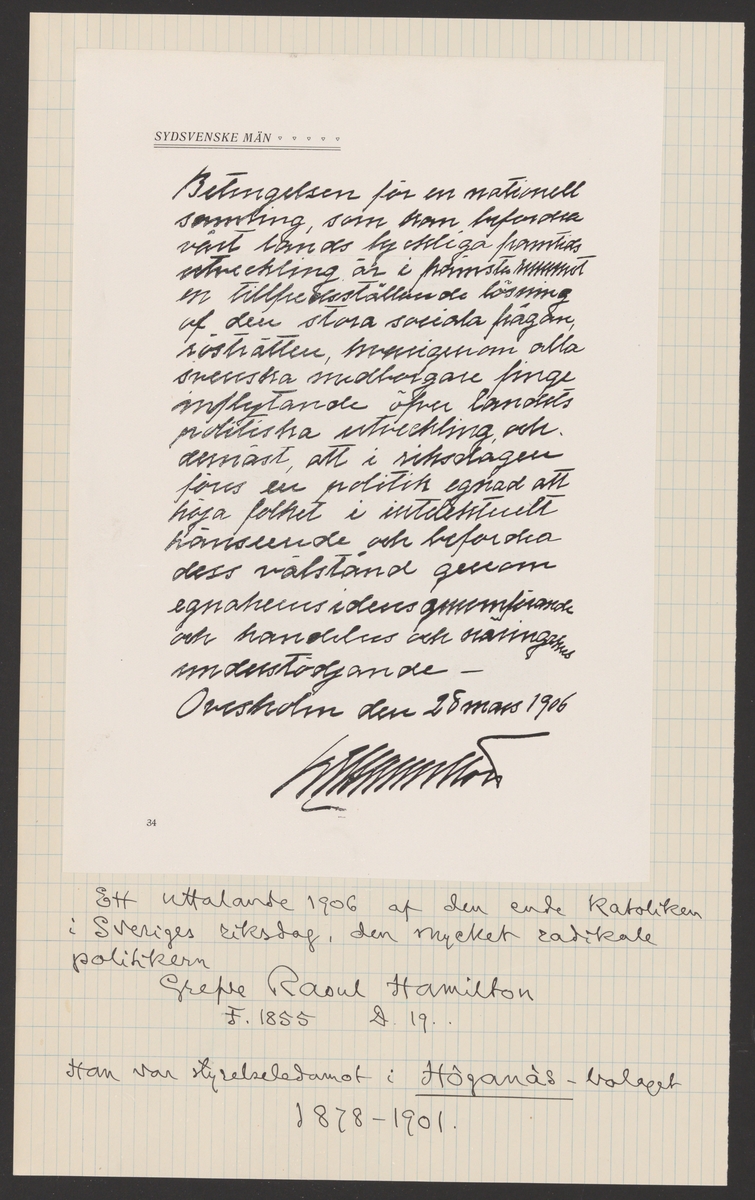 SYDSVENSKE MÄN
Betingelsen för en nationell
samling, som kan befordra
vårt lands lyckliga framtids
utveckling är i främsta rummet
en tillfredsställande lösning
af den stora sociala frågan,
rösträtten, hvarigenom alla
svenska medborgare finge
inflytande öfver landets
politiska utveckling, och
demäst, att i riksdagen
föres en politik egnad att
höja folket i intelektuelt
hänseende och befordra
dess välstånd genom
egnahemsidens genomförande
och handelns och näringarnas
understödjande —
Ovesholm den 28 mars 1906
Hamilton
34
Ett uttalande 1906 af den ende Katoliken
i Sveriges riksdag, den mycket radikale
politikern
Grefve Raoul Hamilton
F. 1855 D. 19..
Han var styrelseledamot i Höganäs-bolaget
1878-1901.